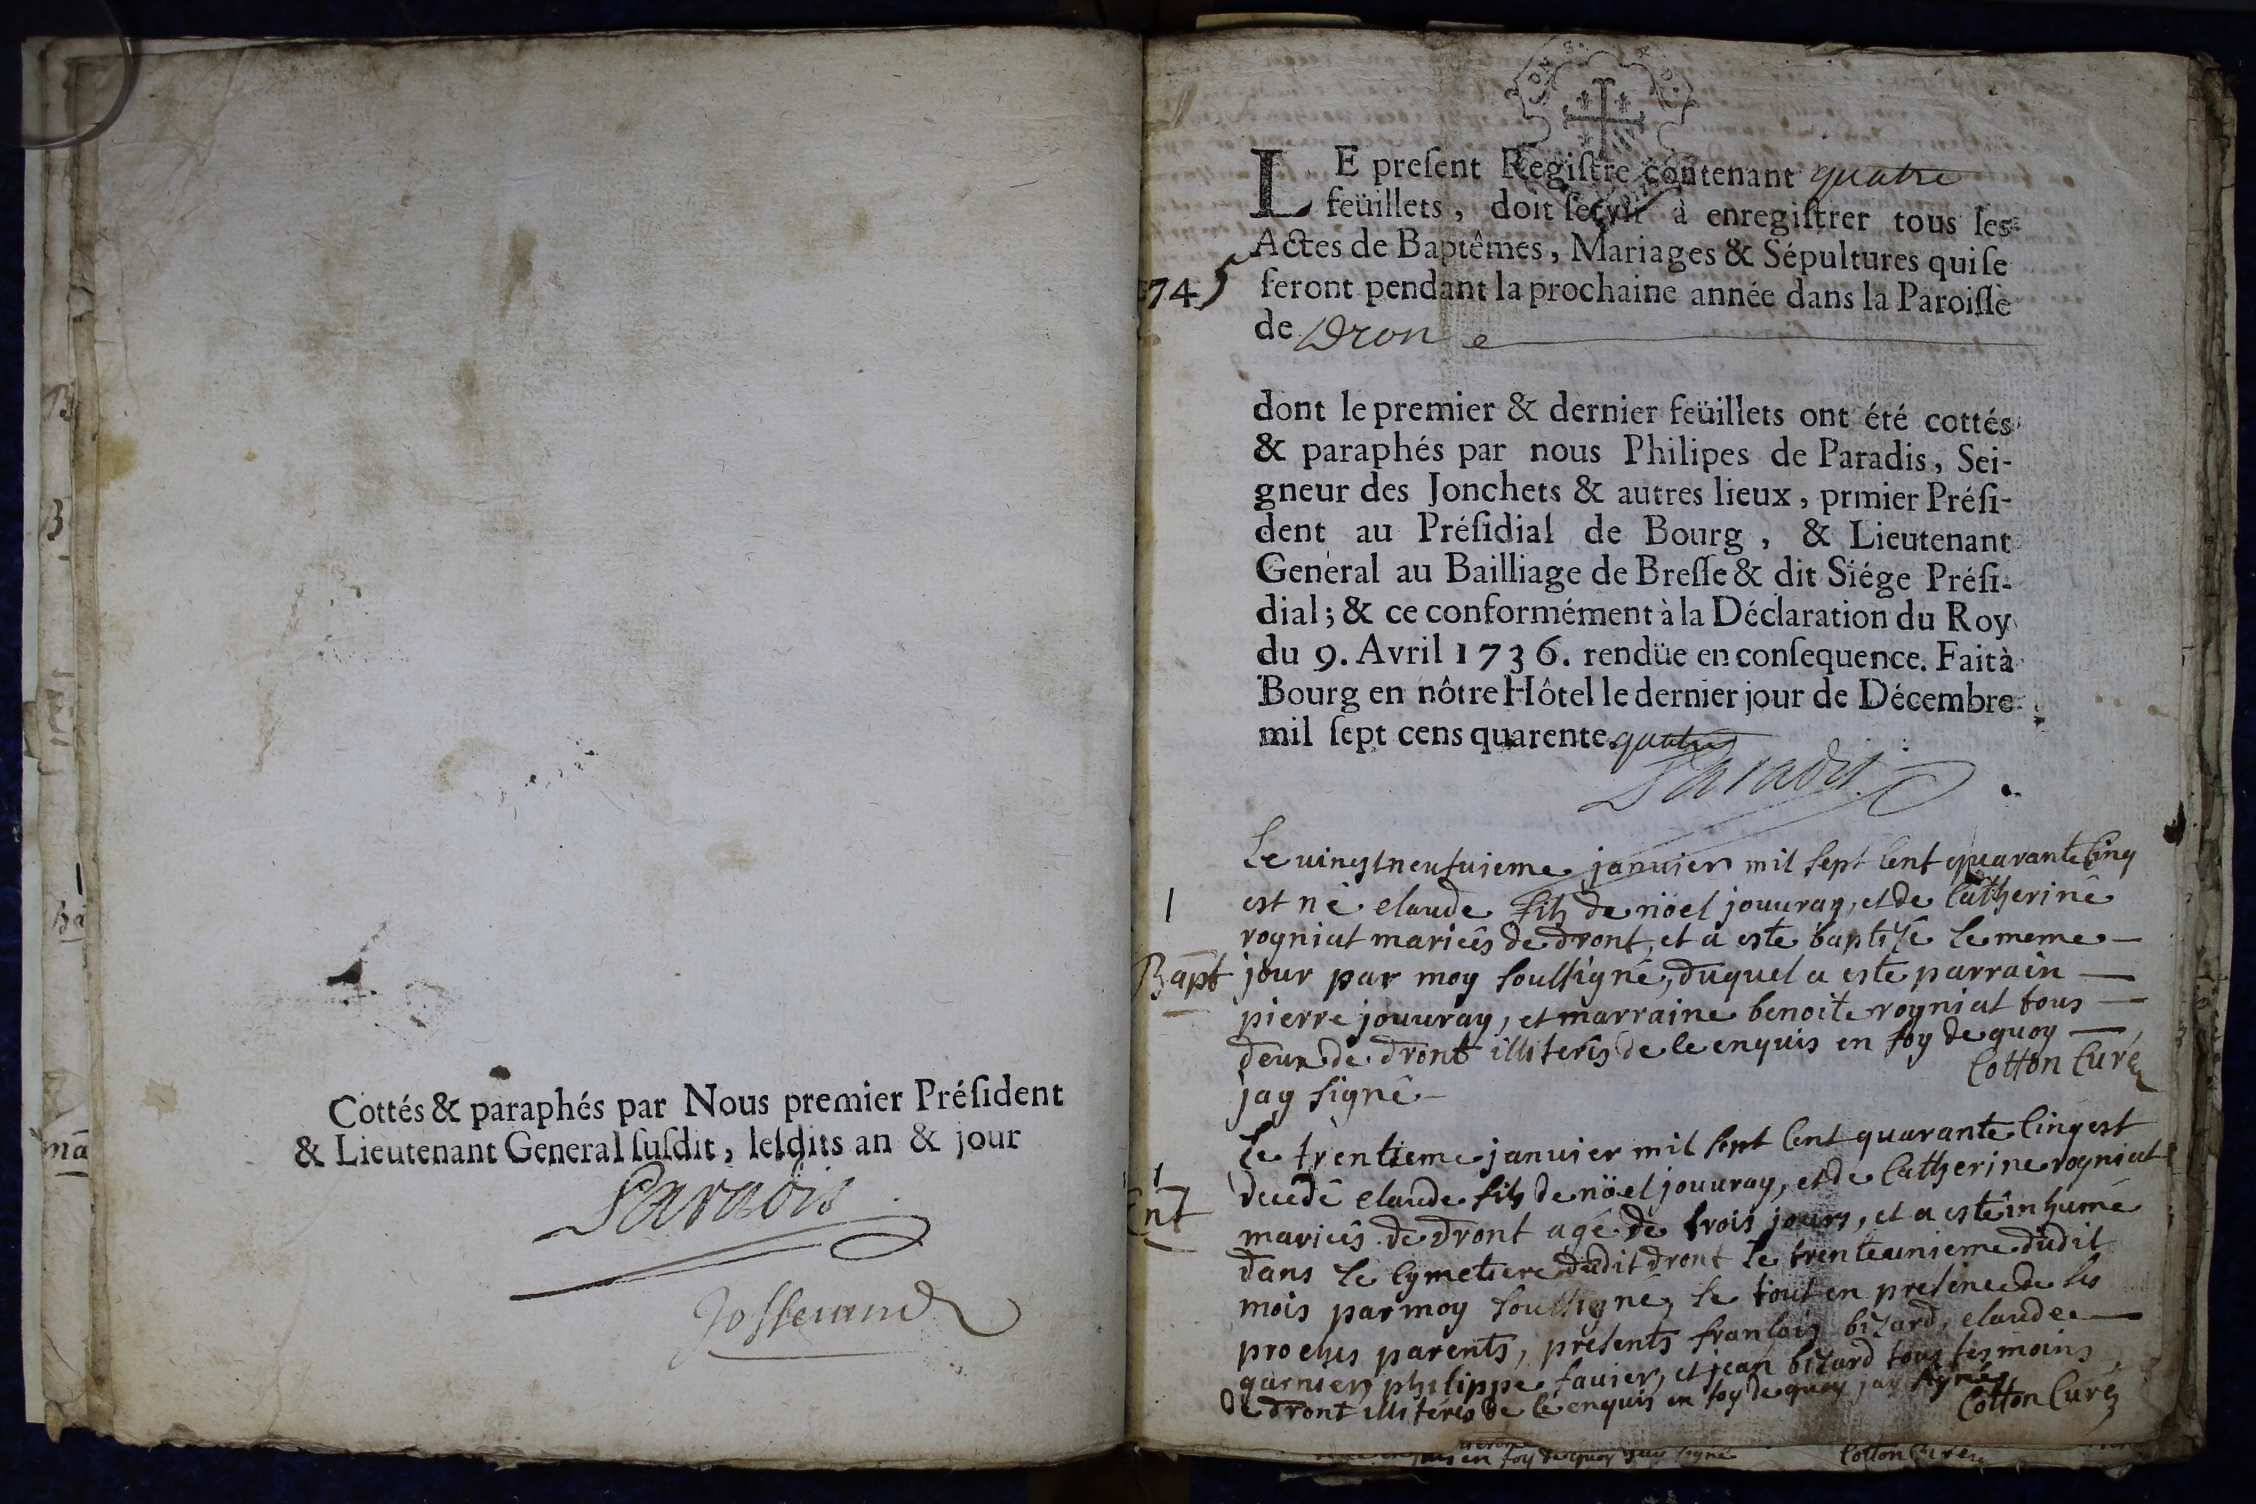 Cottés & paraphés par Nous premier Préſident
& Lieutenant General ſuſdit, leſdits an & jour
Paradis
Josserand
LE preſent Regiſtre contenant quatre
feüillets, doit ſervir à enregiſtrer tous les
Actes de Baptêmes, Mariages & Sépultures qui ſe
745
feront pendant la prochaine année dans la Paroiſſe
de Dron
dont le premier & dernier feüillets ont été cottés
& paraphés par nous Philipes de Paradis, Sei-
gneur des Jonchets & autres lieux, prmier Préſi-
dent au Préſidial de Bourg, & Lieutenant
General au Bailliage de Breſſe & dit Siége Préſi-
dial; & ce conformément à la Déclaration du Roy
du 9. Avril 1736. rendüe en conſequence. Fait à
Bourg en nôtre Hôtel le dernier jour de Décembre
mil ſept cens quarente quatre
Paradis
Le uingtneufuieme januier mil sept cent quarante cinq
1
est né claude fils de nöel jouuray, et de catherine
rogniat mariés de dront, et a esté baptisé le meme
Bapt
jour par moy soussigné, duquel a esté parrain
pierre jouuray, et marraine benoite rogniat tous
deux de dront illiterés de ce enquis en foy de quoy
jay signé
Cotton Curé
Le trentieme januier mil sept cent quarante cinq est
1
Ent
decedé claude fils de nöel jouuray, et de catherine rogniat
mariés de dront agé de trois jours, et a esté inhumé
dans le cymetiere dudit dront le trenteunieme dudit
mois par moy soussigné, le tout en presence de ses
proches parents, presents françois bizard, claude
garnier, philippe fauier, et jean bizard tous tesmoins
de dront illiterés de ce enquis en foy de quoy jay signé
Cotton Curé
en foy de quoy jay signé
Cotton Curé